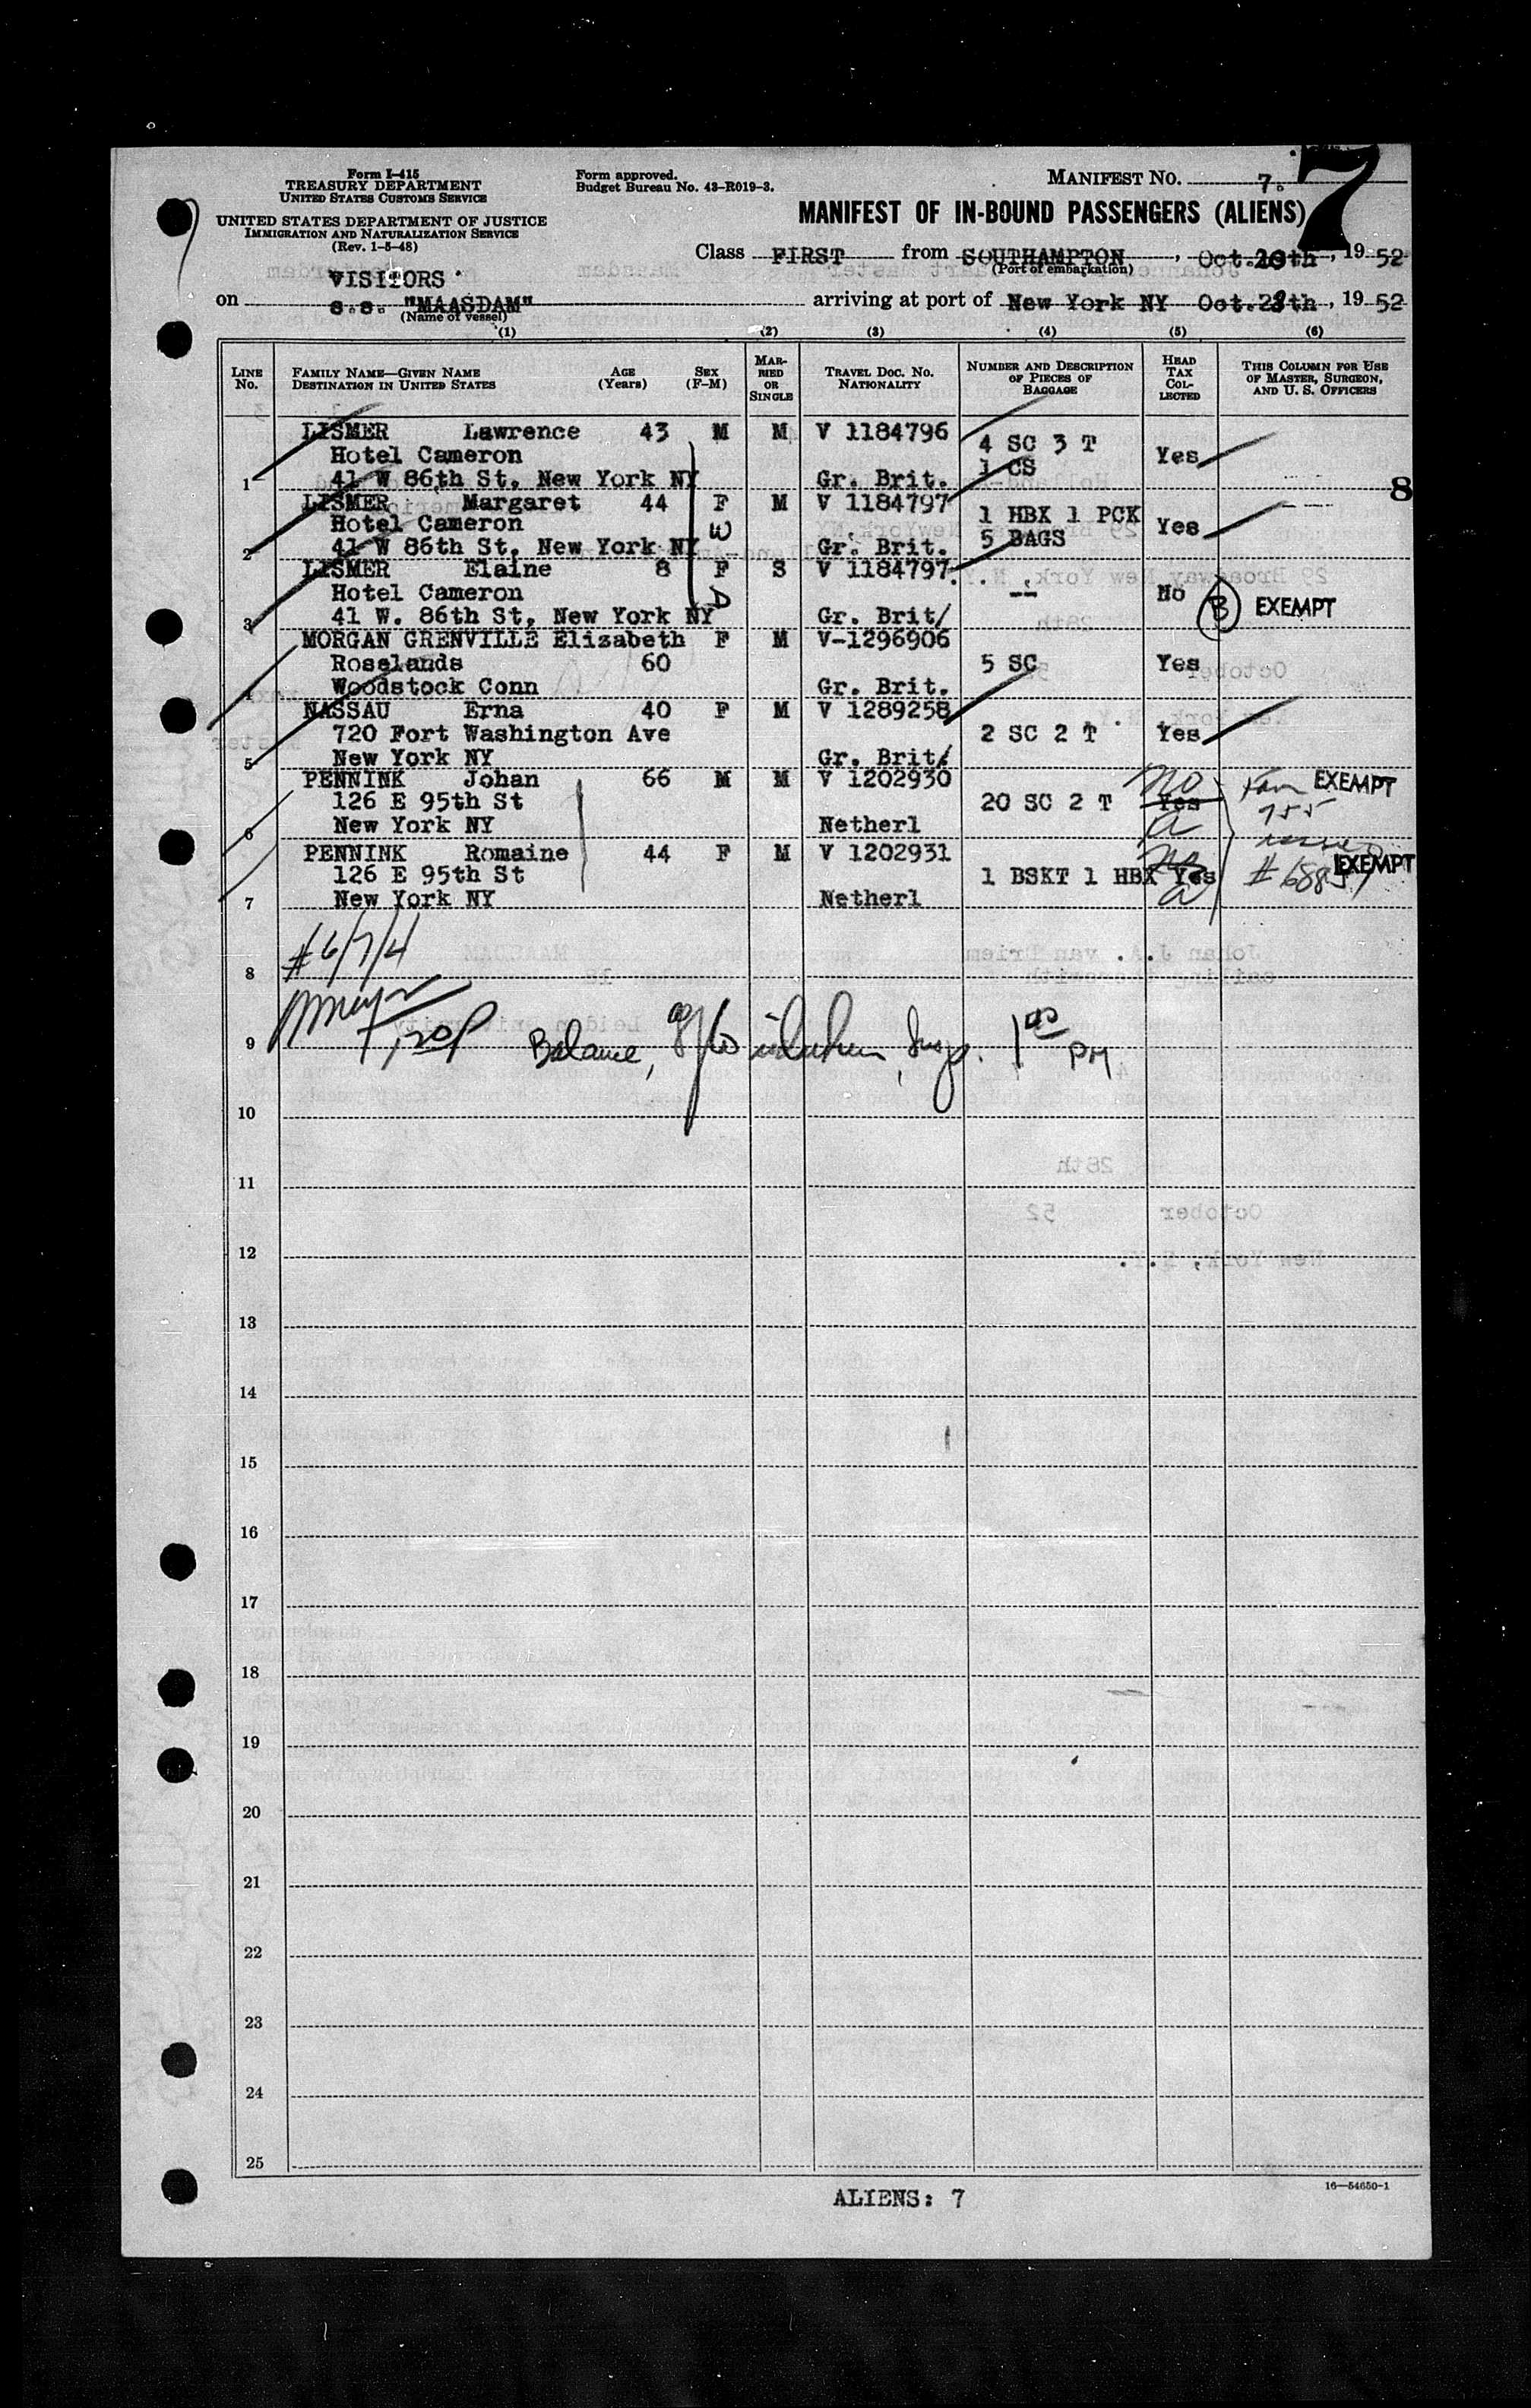 Form I-415
TREASURY DEPARTMENT
UNITED STATES CUSTOMS SERVICE
UNITED STATES DEPARTMENT OF JUSTICE
IMMIGRATION AND NATURALIZATION SERVICE
(Rev. 1-5-48)
Form approved.
Budget Bureau No. 43-R019-3.
MANIFEST NO. 7.
7
MANIFEST OF IN-BOUND PASSENGERS (ALIENS)
Class FIRST from SOUTHAMPTON, Oct. 20th, 19 52
(Port of embarkation)
VISITORS
on s.s. "MAASDAM" arriving at port of New York NY Oct. 28th, 19 52
(Name of vessel)
(1) (2) (3) (4) (5) (6)
LINE No. FAMILY NAME—GIVEN NAME DESTINATION IN UNITED STATES AGE (Years) SEX (F-M) MARRIED OR SINGLE TRAVEL DOC. NO. NATIONALITY NUMBER AND DESCRIPTION OF PIECES OF BAGGAGE HEAD TAX COLLECTED THIS COLUMN FOR USE OF MASTER, SURGEON, AND U. S. OFFICERS
LISMER Lawrence 43 M M V 1184796
Hotel Cameron 4 SC 3 T Yes
1 41 W 86th St, New York NY Gr. Brit. 1 CS
8
LISMER Margaret 44 F M V 1184797
Hotel Cameron 1 HBX 1 PCK Yes
2 41 W 86th St, New York NY Gr. Brit. 5 BAGS
LISMER Elaine 8 F S V 1184797
Hotel Cameron -- No B EXEMPT
3 41 W. 86th St, New York NY Gr. Brit/
MORGAN GRENVILLE Elizabeth F M V-1296906
Roselands 60 5 SC Yes
4 Woodstock Conn Gr. Brit.
NASSAU Erna 40 F M V 1289258
720 Fort Washington Ave 2 SC 2 T Yes
5 New York NY Gr. Brit/
PENNINK Johan 66 M M V 1202930 No EXEMPT
126 E 95th St 20 SC 2 T Yes 755
6 New York NY Netherl a issued
PENNINK Romaine 44 F M V 1202931 No EXEMPT
126 E 95th St 1 BSKT 1 HBX Yes
7 New York NY Netherl a
#6/7/4
8
9 Balance, Insp. 1 PM
10
11
12
13
14
15
16
17
18
19
20
21
22
23
24
25
ALIENS: 7
16—54650-1